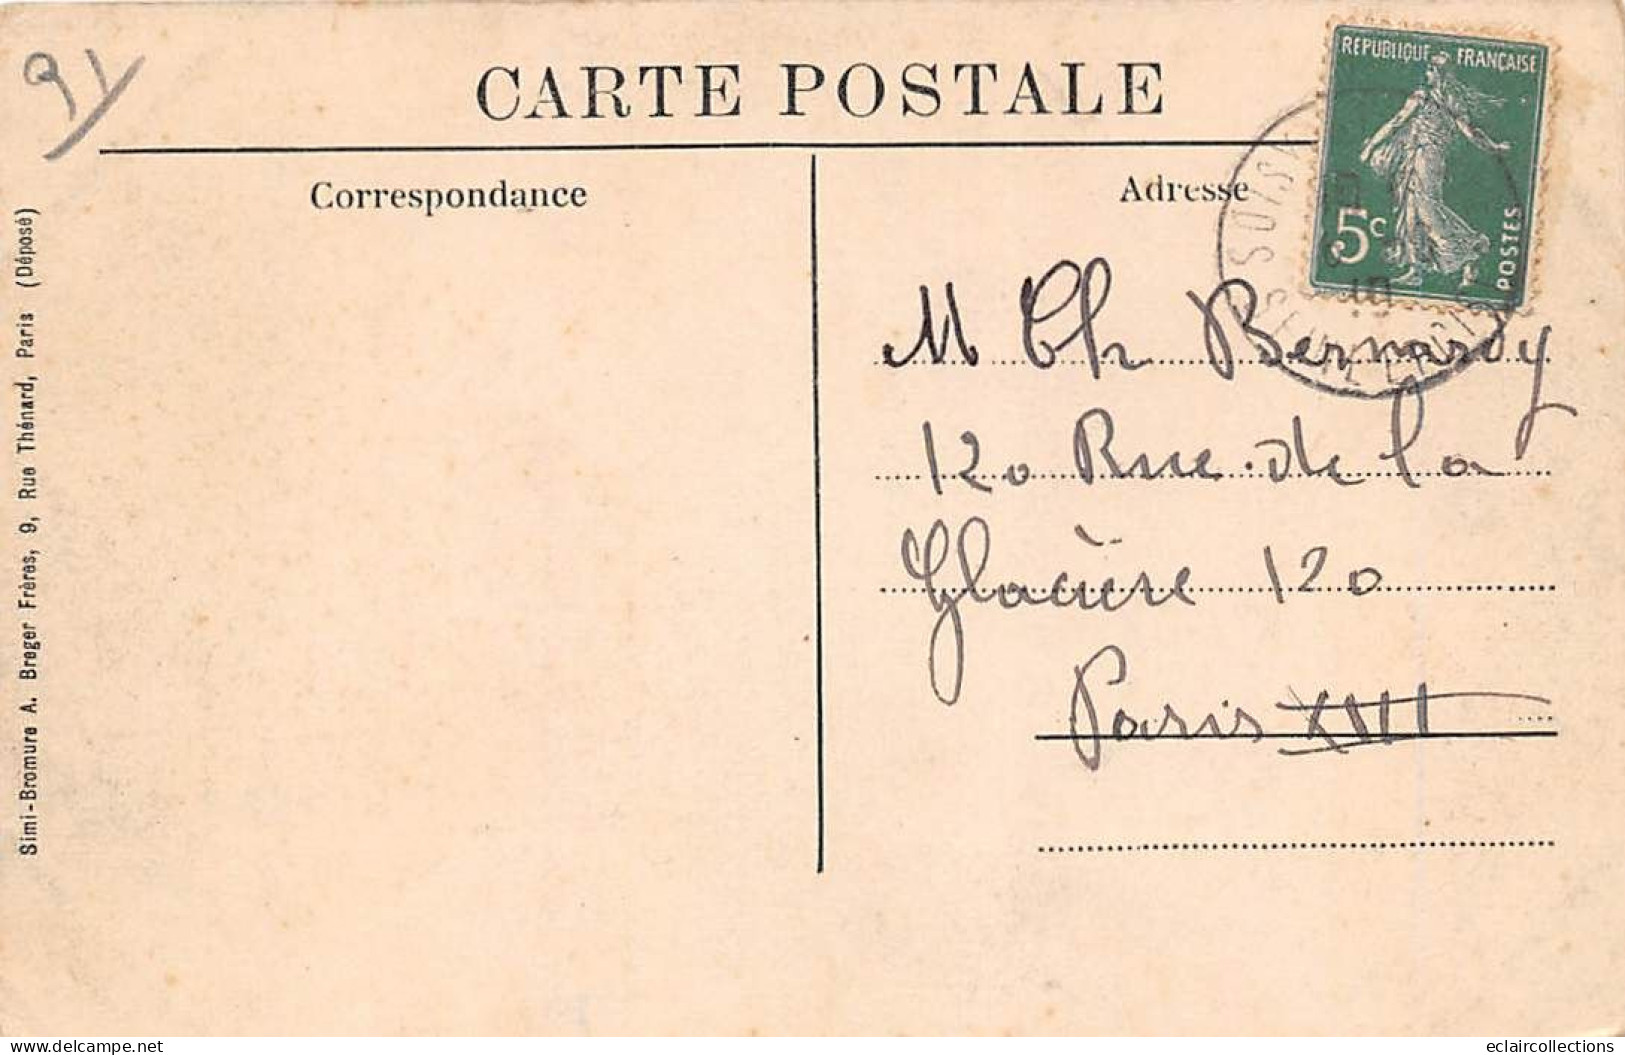 91
CARTE POSTALE
Correspondance
Adresse
RÉPUBLIQUE FRANÇAISE
5c
POSTES
M Ch Bernardy
120 Rue de la
Glacière 120
Paris XIII
Simi-Bromure A. Breger Frères, 9, Rue Thénard, Paris (Déposé)
www.delcampe.net
eclaircollections